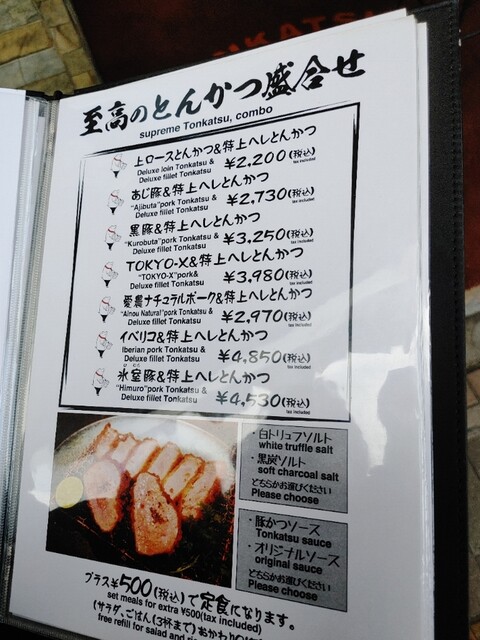 至高のとんかつ盛合せ
supreme Tonkatsu, combo
上ロースとんかつ&特上ヘレとんかつ
Deluxe loin Tonkatsu &
Deluxe fillet Tonkatsu
¥2,200(税込)
tax included
あじ豚&特上ヘレとんかつ
"Ajibuta"pork Tonkatsu &
Deluxe fillet Tonkatsu
¥2,730(税込)
tax included
黒豚&特上ヘレとんかつ
"Kurobuta"pork Tonkatsu &
Deluxe fillet Tonkatsu
¥3,250(税込)
tax included
TOKYO-X&特上ヘレとんかつ
"TOKYO-X"pork&
Deluxe fillet Tonkatsu
¥3,980(税込)
tax included
愛農ナチュラルポーク&特上ヘレとんかつ
"Ainou Natural"pork Tonkatsu &
Deluxe fillet Tonkatsu
¥2,970(税込)
tax included
イベリコ&特上ヘレとんかつ
Iberian pork Tonkatsu &
Deluxe fillet Tonkatsu
¥4,850(税込)
tax included
氷室豚&特上ヘレとんかつ
"Himuro"pork Tonkatsu &
Deluxe fillet Tonkatsu
¥4,530(税込)
tax included
・白トリュフソルト
white truffle salt
・黒炭ソルト
soft charcoal salt
どちらかお選びください
Please choose
・豚かつソース
Tonkatsu sauce
・オリジナルソース
original sauce
どちらかお選びください
Please choose
プラス¥500(税込)で定食になります。
set meals for extra ¥500(tax included)
(サラダ、ごはん(3杯まで)おかわり
free refill for salad and